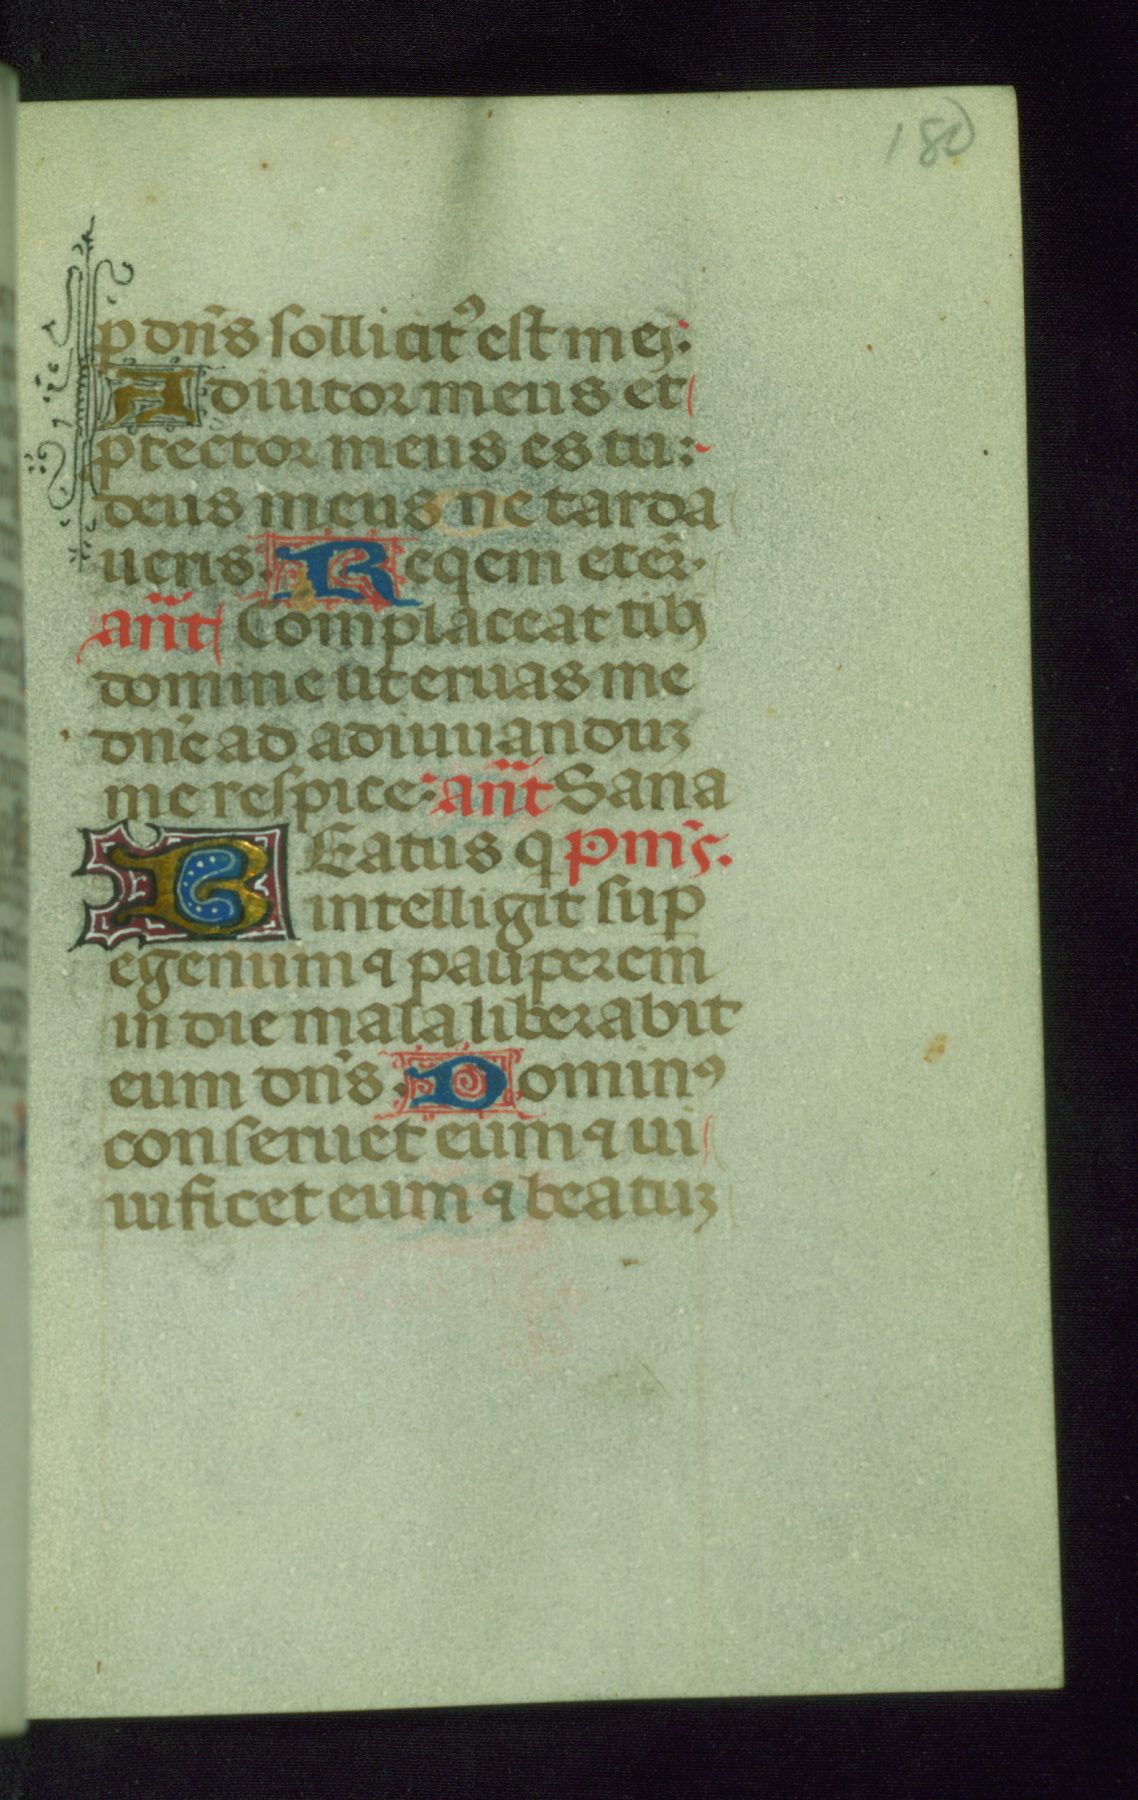 180
p dñs sollicitꝰ est mei:
Adiutor meus et
ꝓtector meus es tu:
deus meus ne tarda
ueris. Reqem eter̃.
añt Complaceat tibi
domine ut eruas me
dñe ad adiuuanduꝫ
me respice: añt Sana
BEatus q pm̃s.
intelligit sup
egenum ⁊ pauperem
in die mala liberabit
eum dñs. Dominꝰ
conseruet eum ⁊ ui
uificet eum ⁊ beatuꝫ